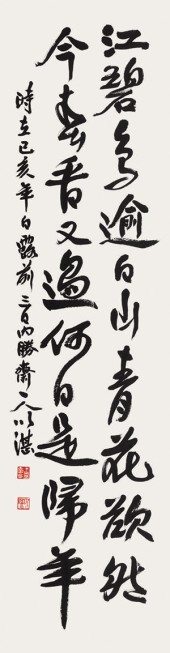 江碧鳥逾白山青花欲然
今春看又過何日是歸年
時在己亥年白露前三日內勝齋人以湛